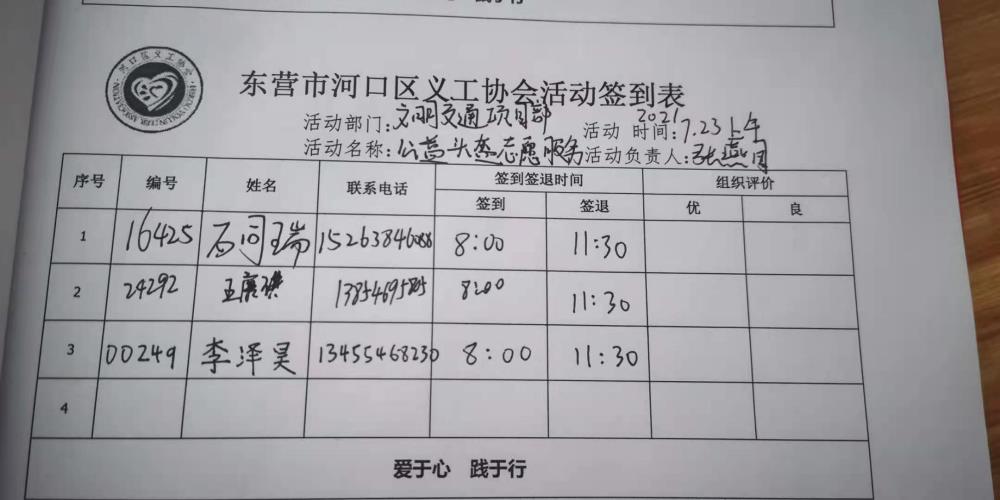 践于行
东营市河口区义工协会活动签到表
活动部门:文明交通项目部 活动 时间:2021 7.23上午
活动名称:公益头盔志愿服务 活动负责人:
序号 编号 姓名 联系电话 签到签退时间 组织评价
签到 签退 优 良
1 16425 石同瑞 15263846088 8:00 11:30
2 24292 8:00 11:30
3 00249 李泽昊 13455468230 8:00 11:30
4
爱于心 践于行